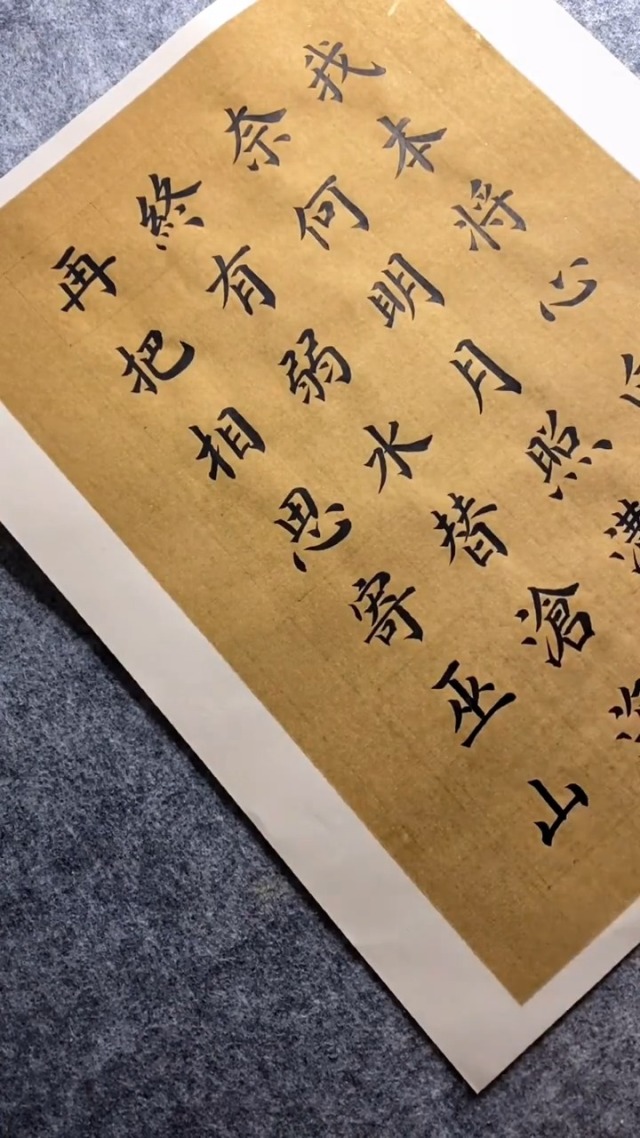 我本将心
奈何明月照
終有弱水替滄
再把相思寄巫山